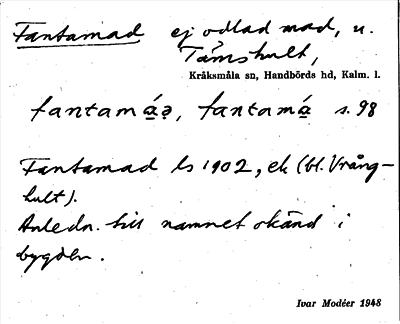 Fantamad ej odlad mad, u.
Tåmshult,
Kråksmåla sn, Handbörds hd, Kalm. l.
fantamá̱ə, fantamá̱ s. 98
Fantamad ls 1902, ek (bl. Vrång-
hult).
Anledn. till namnet okänd i
bygden.
Ivar Modéer 1948